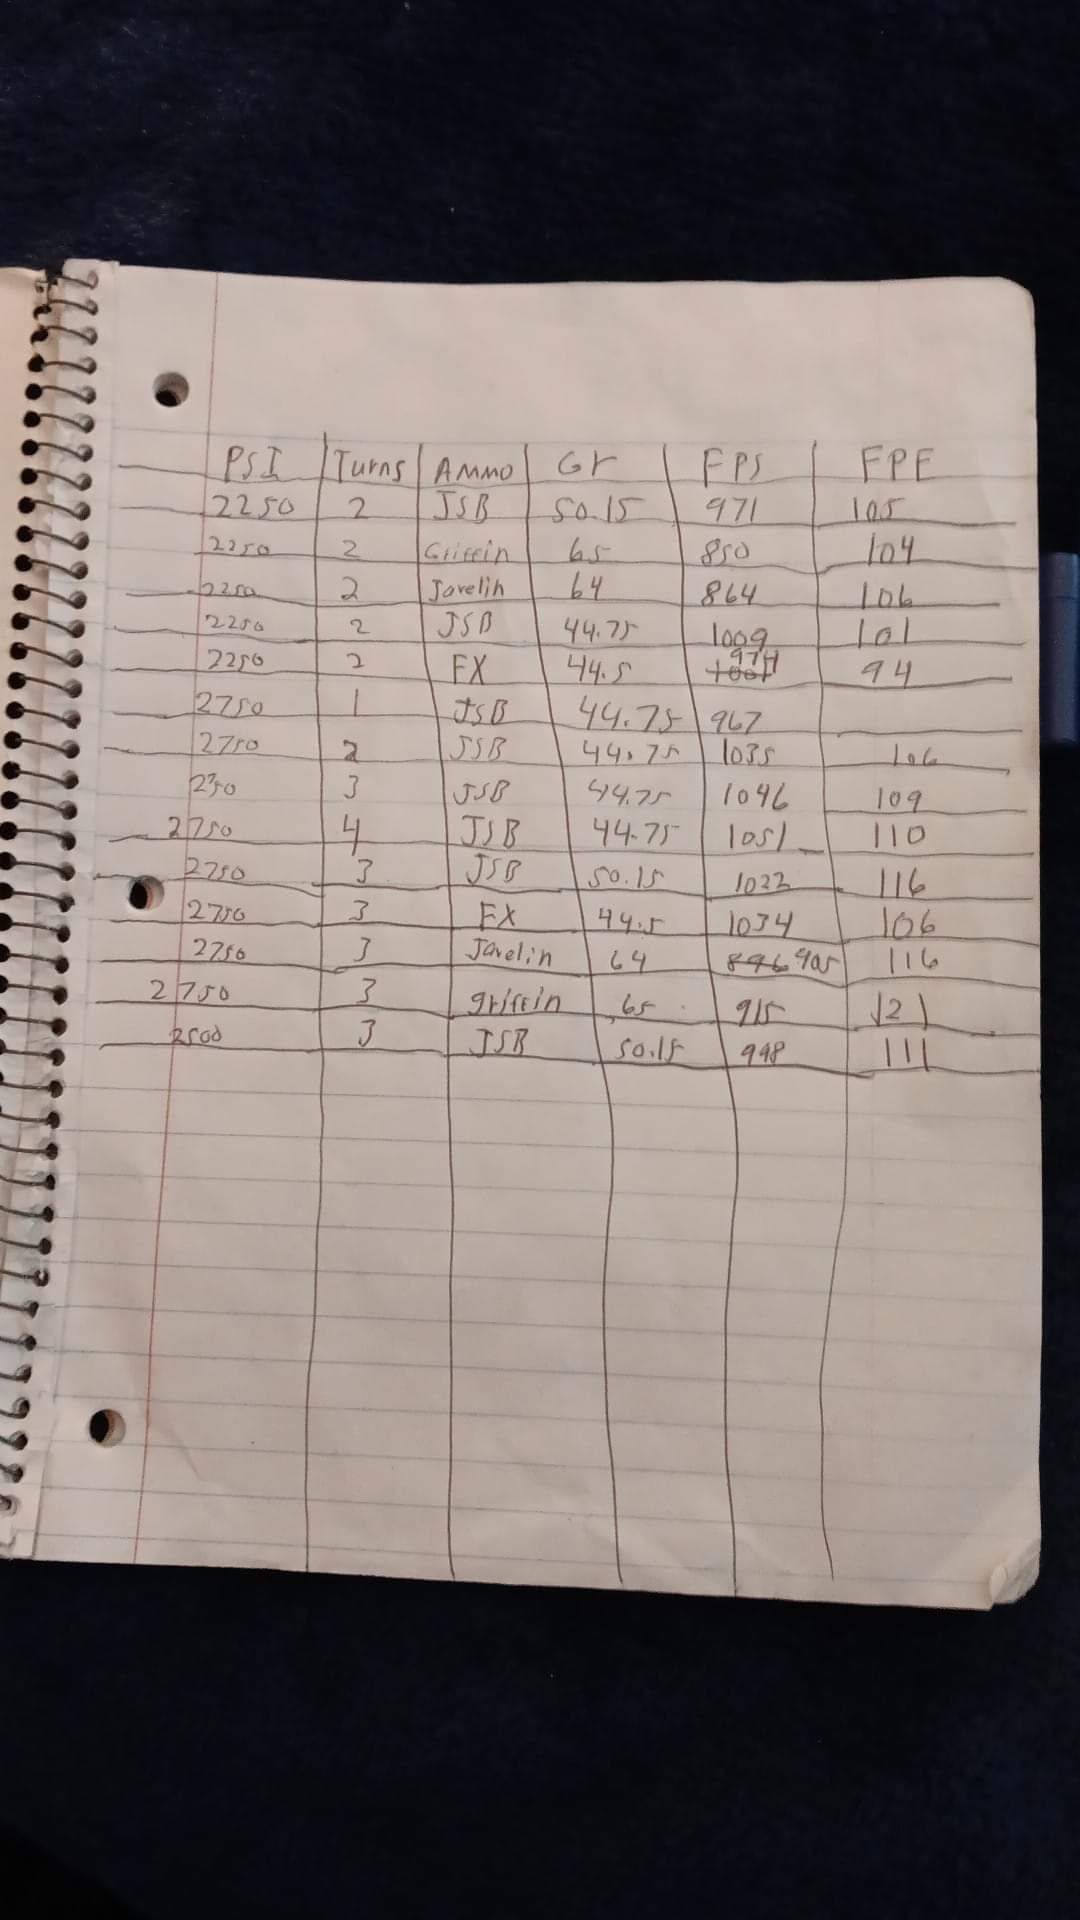 PSI Turns Ammo Gr FPS FPE
2250 2 JSB 50.15 971 105
2250 2 Griffin 65 850 104
2250 2 Javelin 64 864 106
2250 2 JSB 44.75 1009 101
2250 2 FX 44.5 974 94
2750 1 JSB 44.75 967
2750 2 JSB 44.75 1035 106
2750 3 JSB 44.75 1046 109
2750 4 JSB 44.75 1051 110
2750 3 JSB 50.15 1022 116
2750 3 FX 44.5 1034 106
2750 3 Javelin 64 896 905 116
2750 3 griffin 65 915 121
2500 3 JSB 50.15 998 111